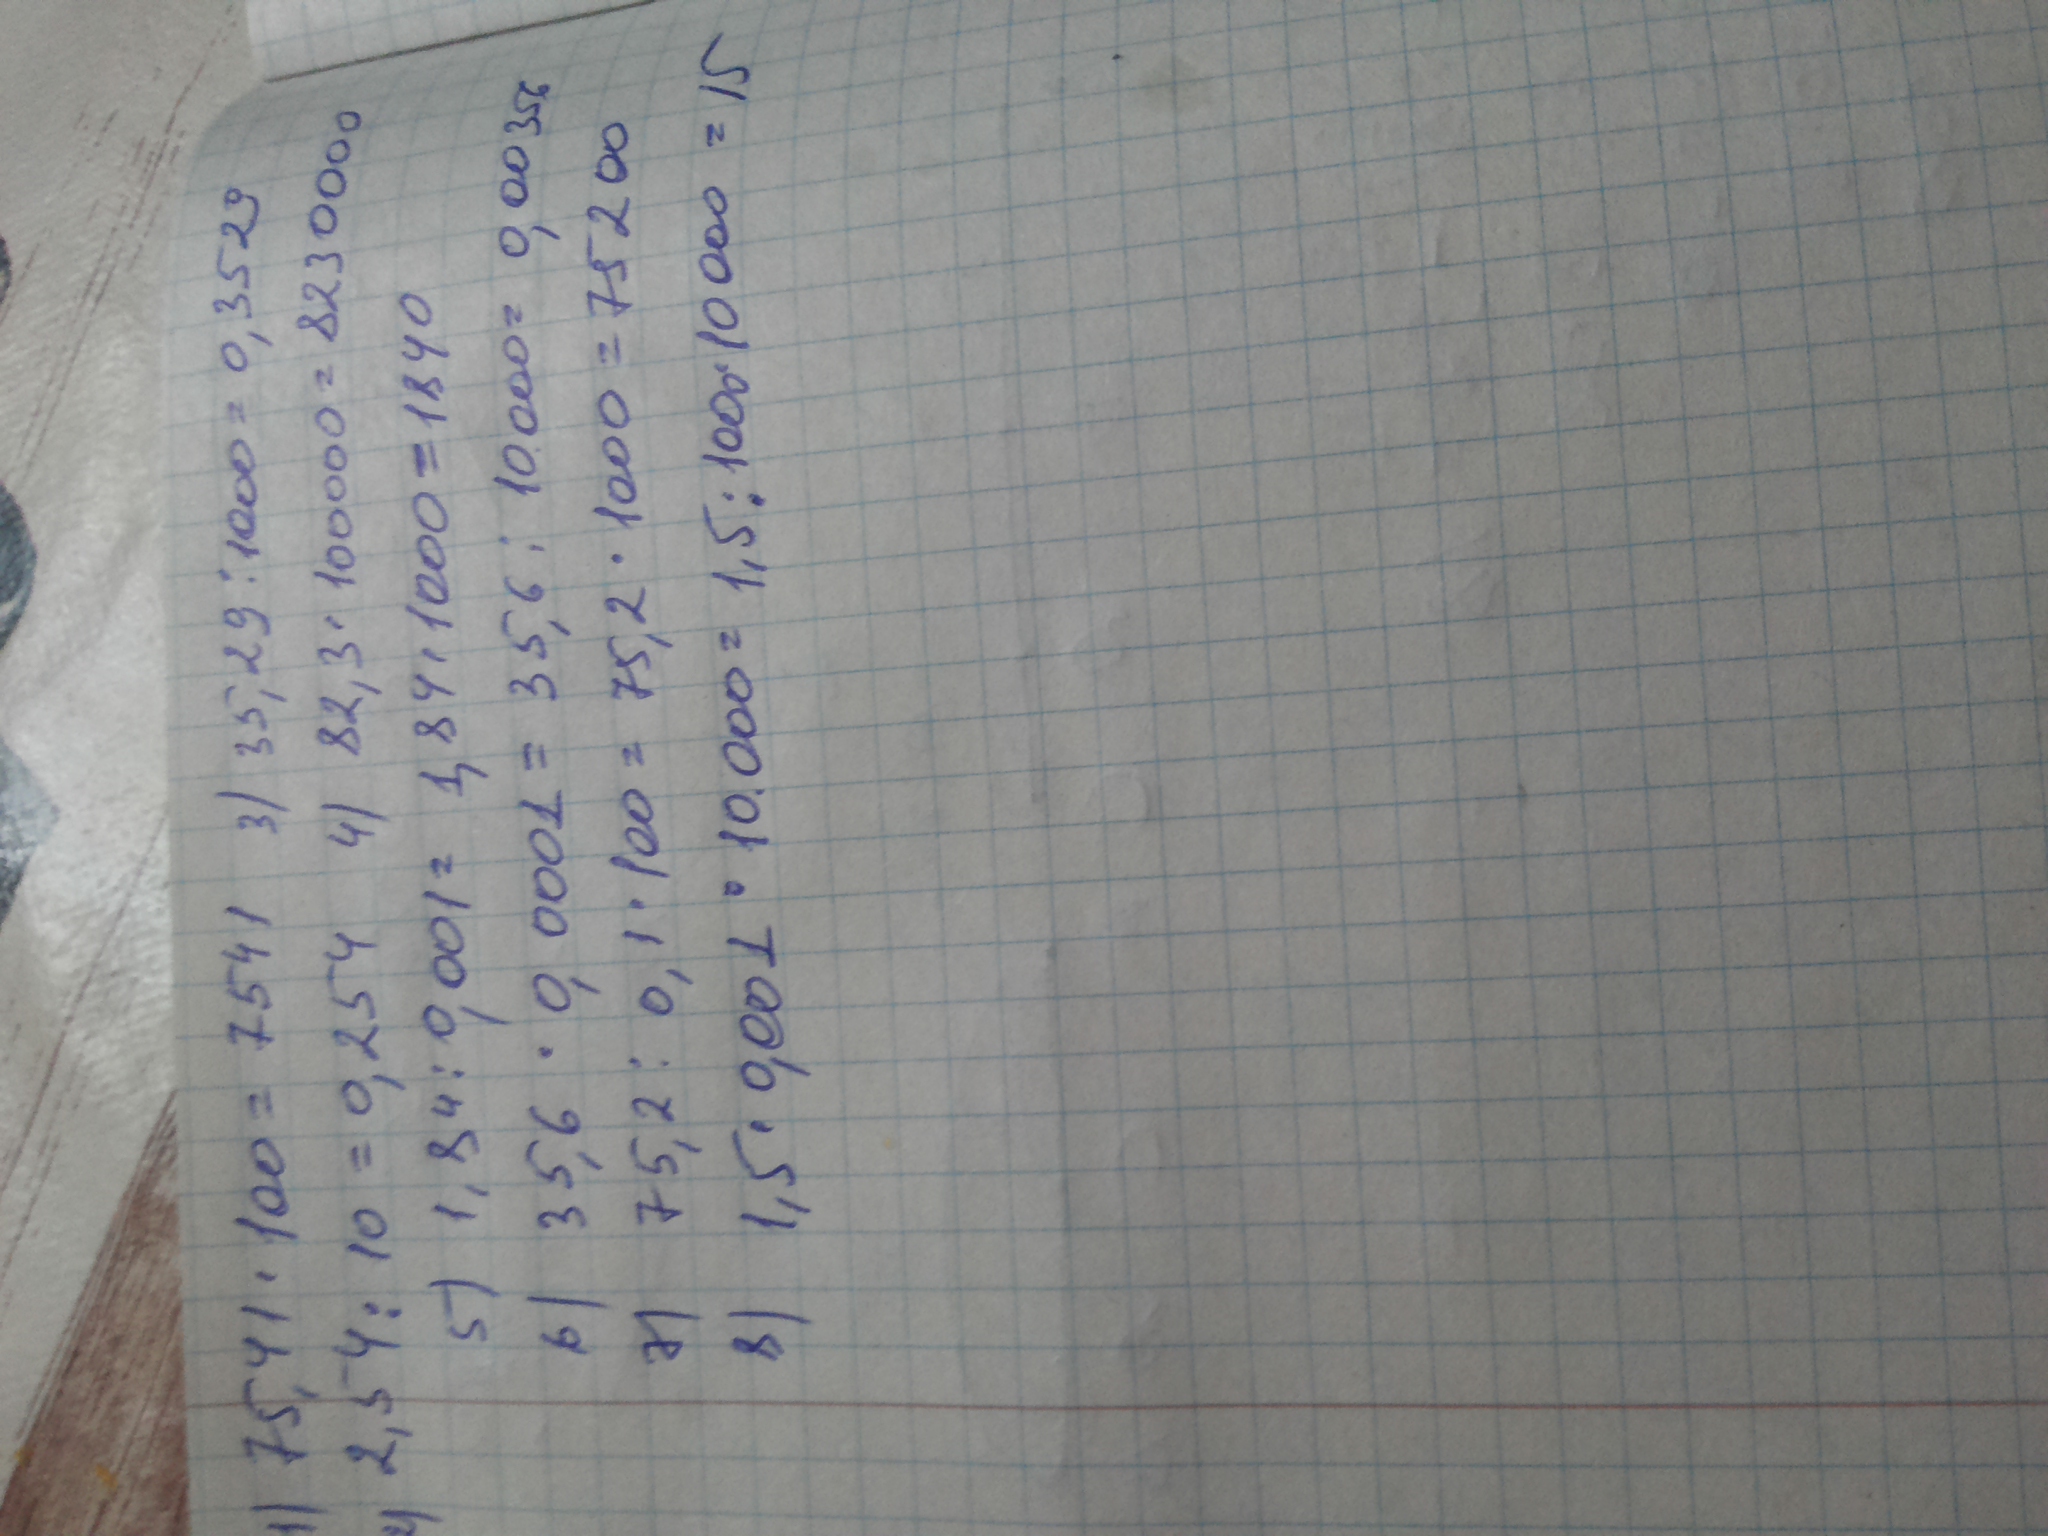 1) 75,41 · 100 = 7541 3) 35,29 : 1000 = 0,3529
2) 2,54 : 10 = 0,254 4) 82,3 · 100000 = 8230000
5) 1,84 : 0,001 = 1,84 · 1000 = 1840
6) 35,6 · 0,0001 = 35,6 : 10.000 = 0,00356
7) 75,2 : 0,1 · 100 = 75,2 · 1000 = 75200
8) 1,5 · 0,001 · 10.000 = 1,5 : 1000 · 10000 = 15